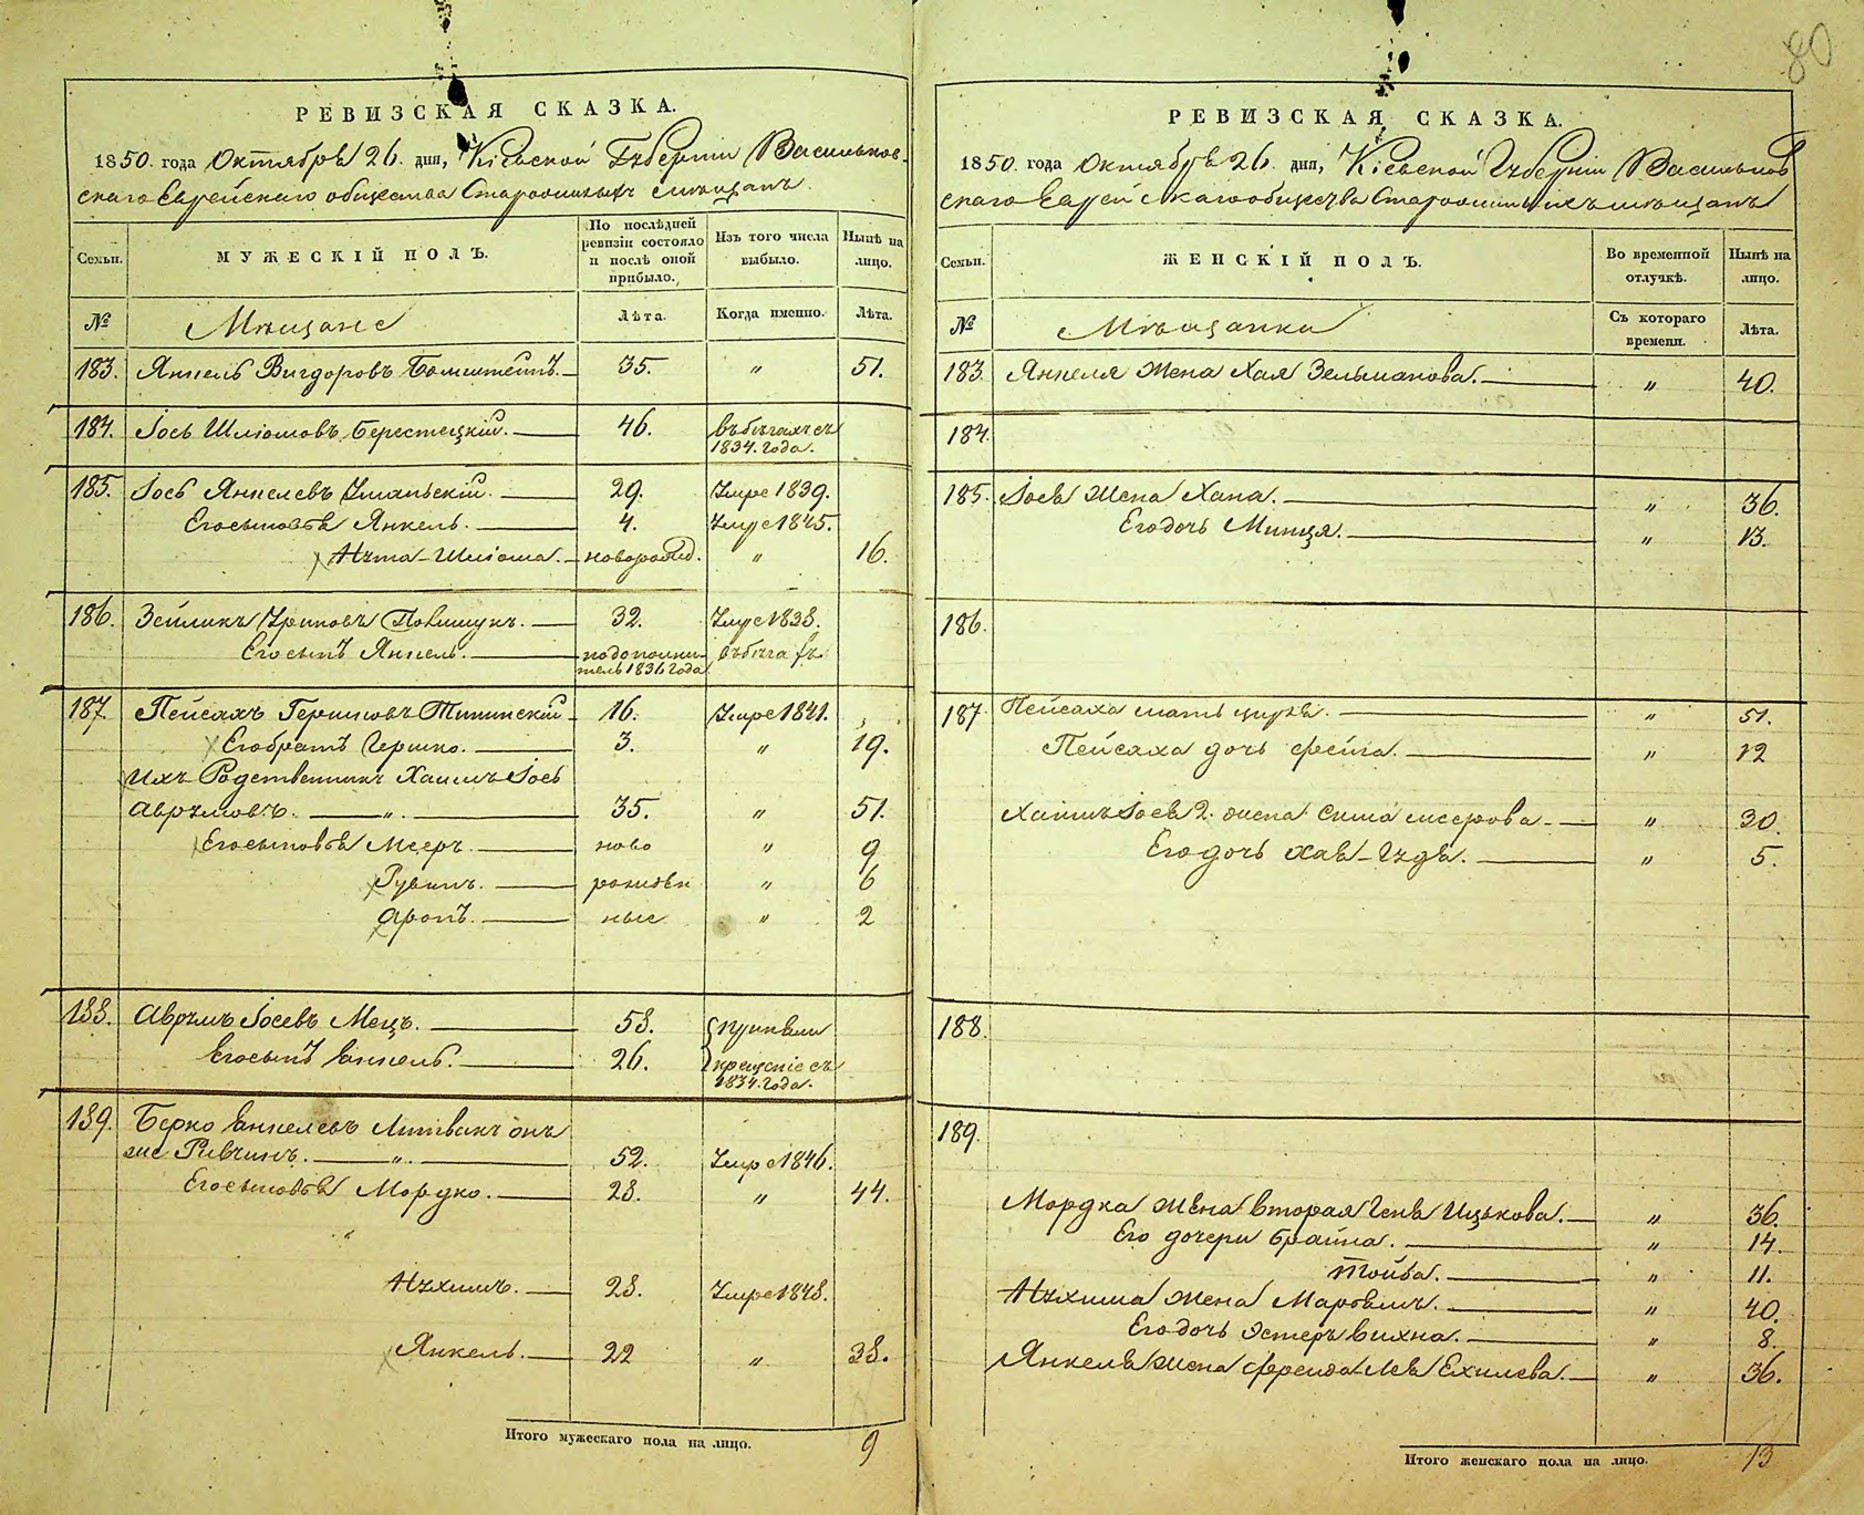 80
РЕВИЗСКАЯ СКАЗКА.
1850. года Октября 26. дня, Кіевской Губерніи Васильков-
скаго Еврейскаго общества Старожилыхъ мѣщанъ.
Семьи.
МУЖЕСКІЙ ПОЛЪ.
По послѣдней ревизіи состояло и послѣ оной прибыло.
Изъ того числа выбыло.
Нынѣ на лицо.
№ Мѣщане Лѣта. Когда именно. Лѣта.
183. Янкель Вигдоровъ 35. " 51.
184. Іось Шліомовъ Берестецкій. 46. въ бѣгахъ съ
1834. года.
185. Іось Янкелевъ Уманьскій. 29. Умре 1839.
Его сыновья Янкель. 4. Умре 1845.
Нута-Шліома. новорожд. " 16.
186. Зейликъ 32. Умре 1838.
Его сынъ Янкель.
1836 года
187. Пейсахъ Гершковъ 16. Умре 1841.
Его братъ Гершко. 3. " 19.
Ихъ Родственникъ Хаимъ Іось
Аврумовъ. " 35. " 51.
Его сыновья Мееръ. ново " 9
Рувинъ. рожден " 6
Аронъ. ные " 2
188. Аврумъ Іосевъ Мецъ. 58. приняли
Его сынъ Янкель. 26. крещеніе съ
1834. года.
189. Берко Янкелевъ Литвакъ онъ
же Ривчинъ. " 52. Умре 1846.
Его сыновья Мордко. 28. " 44.
Нухимъ. 28. Умре 1848.
Янкель. 22 " 38.
Итого мужескаго пола на лицо. 9
РЕВИЗСКАЯ СКАЗКА.
1850. года Октября 26. дня, Кіевской Губерніи Васильков
скаго Еврейскаго общества Старожилыхъ мѣщанъ
Семьи.
ЖЕНСКІЙ ПОЛЪ.
Во временной отлучкѣ.
Нынѣ на лицо.
№ Мѣщанки Съ котораго времени. Лѣта.
183. Янкеля жена Хая Зельманова. " 40.
184.
185. Іося жена Хана. " 36.
Его дочь Минця. " 13.
186.
187. Пейсаха мать Цирля. " 51.
Пейсаха дочь Фейга. " 12
Хаимъ Іося 2. жена Сима Меерова. " 30.
Его дочь Хая-Гудя. " 5.
188.
189.
Мордка жена вторая Геня Ицькова. " 36.
Его дочери Брайна. " 14.
Тойба. " 11.
Нухима жена " 40.
Его дочь Эстеръ Вихна. " 8.
Янкеля жена Фрейда-Лея Ехилева. " 36.
Итого женскаго пола на лицо. 13